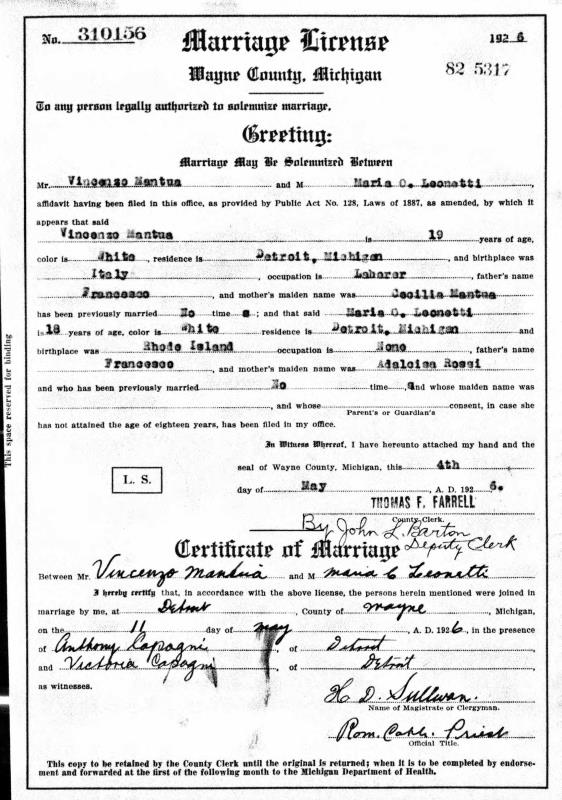 No. 310156
Marriage License
1926
Wayne County, Michigan
82 5317
To any person legally authorized to solemnize marriage,
Greeting:
Marriage May Be Solemnized Between
Mr. Vincenzo Mantua and M Maria C. Leonetti,
affidavit having been filed in this office, as provided by Public Act No. 128, Laws of 1887, as amended, by which it
appears that said
Vincenzo Mantua is 19 years of age,
color is White, residence is Detroit, Michigan, and birthplace was
Italy, occupation is Laborer, father's name
Francesco, and mother's maiden name was Cecilia Mantua
has been previously married No time s; and that said Maria C. Leonetti
is 18 years of age, color is White residence is Detroit, Michigan and
birthplace was Rhode Island occupation is None, father's name
Francesco, and mother's maiden name was Adaloisa Rossi
and who has been previously married No time, and whose maiden name was
, and whose consent, in case she
Parent's or Guardian's
has not attained the age of eighteen years, has been filed in my office.
In Witness Whereof, I have hereunto attached my hand and the
seal of Wayne County, Michigan, this 4th
L. S.
day of May, A. D. 1926.
THOMAS F. FARRELL
County Clerk.
By John L. Barton
Deputy Clerk
Certificate of Marriage
Between Mr. Vincenzo Mantua and M Maria C Leonetti
I hereby certify that, in accordance with the above license, the persons herein mentioned were joined in
marriage by me, at Detroit, County of Wayne, Michigan,
on the 11 day of May, A. D. 1926, in the presence
of Anthony Capagni, of Detroit
and Victoria Capagni, of Detroit,
as witnesses.
H. D. Sullivan.
Name of Magistrate or Clergyman.
Rom. Cath. Priest
Official Title.
This copy to be retained by the County Clerk until the original is returned; when it is to be completed by endorse-
ment and forwarded at the first of the following month to the Michigan Department of Health.
This space reserved for binding